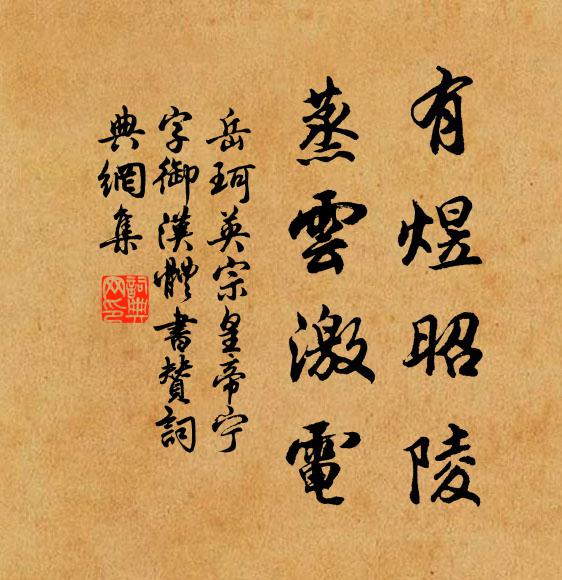 有煜昭陵
蒸雲激電
岳珂英宗皇帝宁
字御漢體書賛詞
典網集
詞典
网印